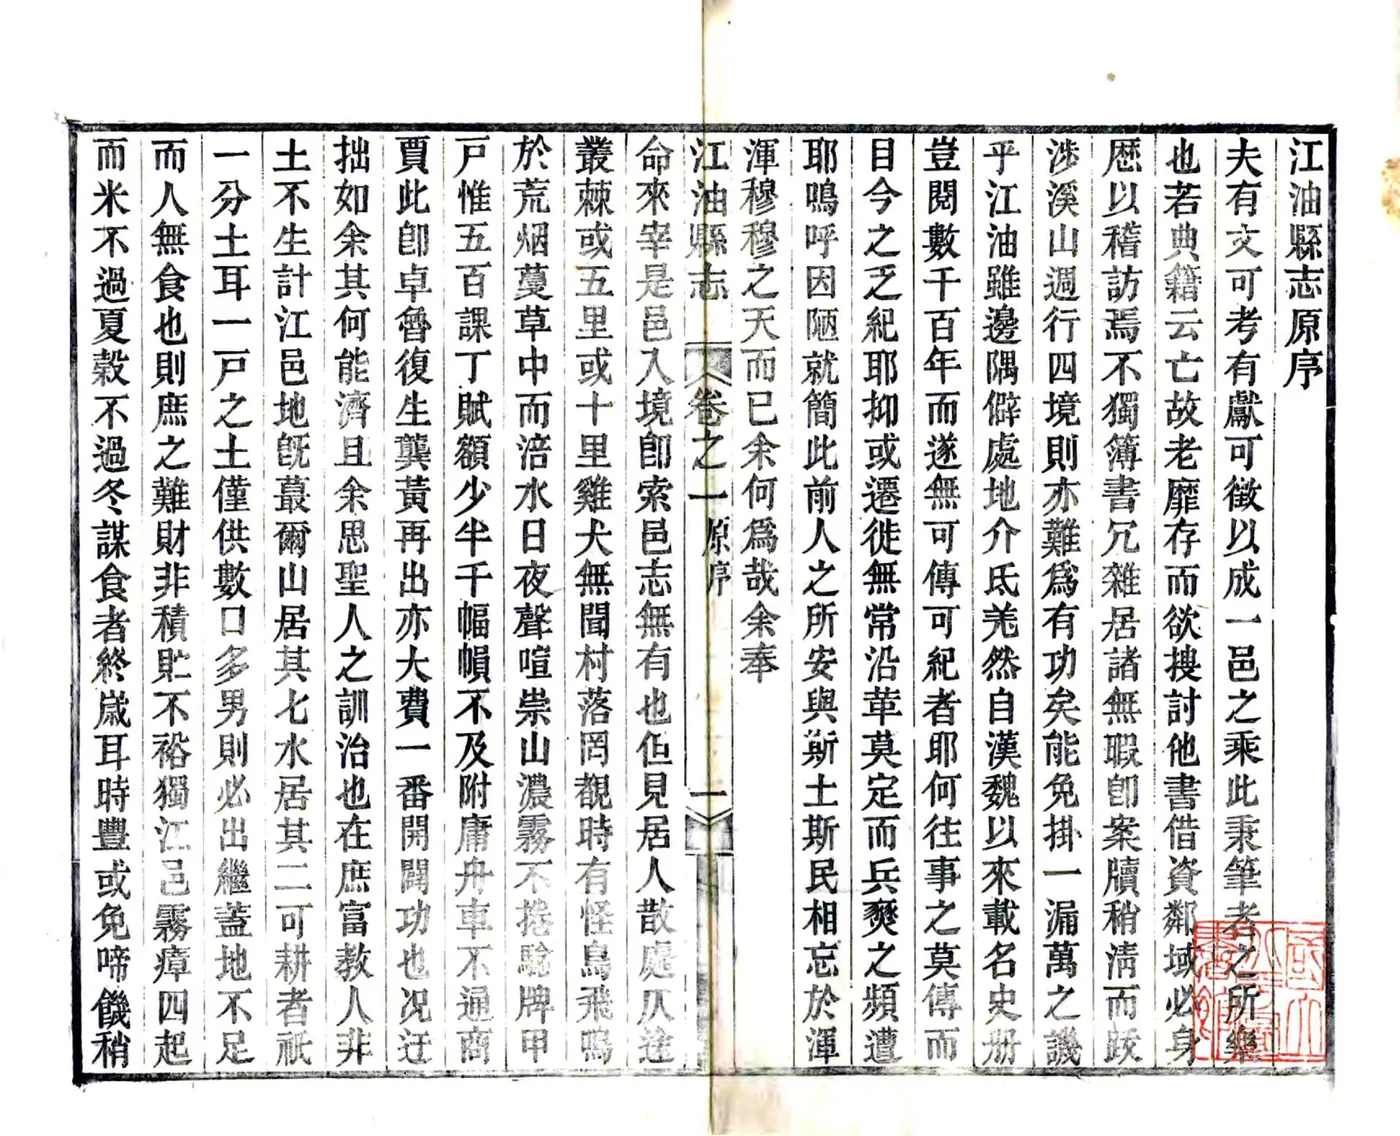 江油縣志原序
夫有文可考有獻可徵以成一邑之乘此秉筆者之所樂
也若典籍云亡故老靡存而欲搜討他書借資鄰域必身
歷以稽訪焉不獨簿書冗雜居諸無暇卽案牘稍淸而跋
涉溪山週行四境則亦難爲有功矣能免掛一漏萬之譏
乎江油雖邊隅僻處地介氐羌然自漢魏以來載名史册
豈閱數千百年而遂無可傳可紀者耶何往事之莫傳而
目今之乏紀耶抑或遷徙無常沿革莫定而兵燹之頻遭
耶嗚呼因陋就簡此前人之所安與斯土斯民相忘於渾
渾穆穆之天而已余何爲哉余奉
江油縣志 卷之一 原序 一
命來宰是邑入境卽索邑志無有也但見居人散處仄途
叢棘或五里或十里雞犬無聞村落罔覩時有怪鳥飛鳴
於荒烟蔓草中而涪水日夜聲喧崇山濃霧不捲騐牌甲
戸惟五百課丁賦額少半千幅幀不及附庸舟車不通商
賈此卽卓魯復生龔黃再出亦大費一番開闢功也况迂
拙如余其何能濟且余思聖人之訓治也在庶富教人非
土不生計江邑地旣蕞爾山居其七水居其二可耕者祇
一分土耳一戸之土僅供數口多男則必出繼蓋地不足
而人無食也則庶之難財非積貯不裕獨江邑霧瘴四起
而米不過夏穀不過冬謀食者終歲耳時豐或免啼饑稍